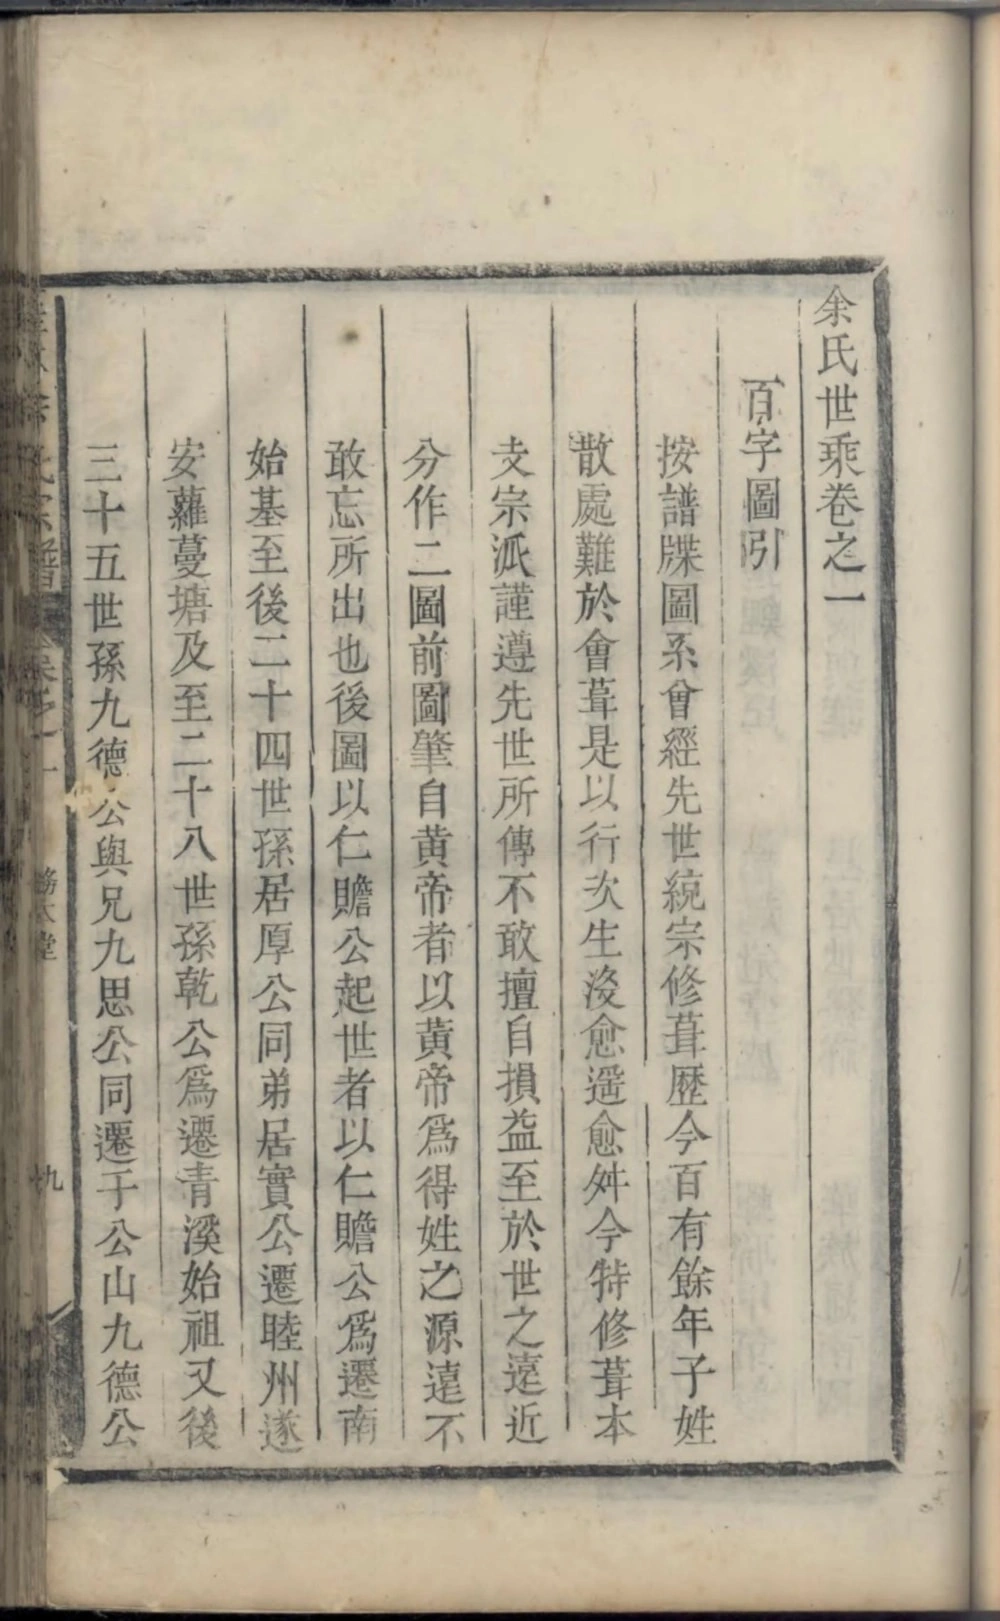 余氏世乘卷之一
百字圖引
按譜牒圖系曾經先世統宗修葺歷今百有餘年子姓
散處難於會葺是以行次生沒愈遥愈舛今特修葺本
支宗派謹遵先世所傳不敢擅自損益至於世之遠近
分作二圖前圖肇自黄帝者以黄帝爲得姓之源遠不
敢忘所出也後圖以仁贍公起世者以仁贍公爲遷南
始基至後二十四世孫居厚公同弟居實公遷睦州遂
安蘿蔓塘及至二十八世孫乾公爲遷青溪始祖又後
三十五世孫九德公與兄九思公同遷于公山九德公
余氏宗譜 卷之一 務本堂 九